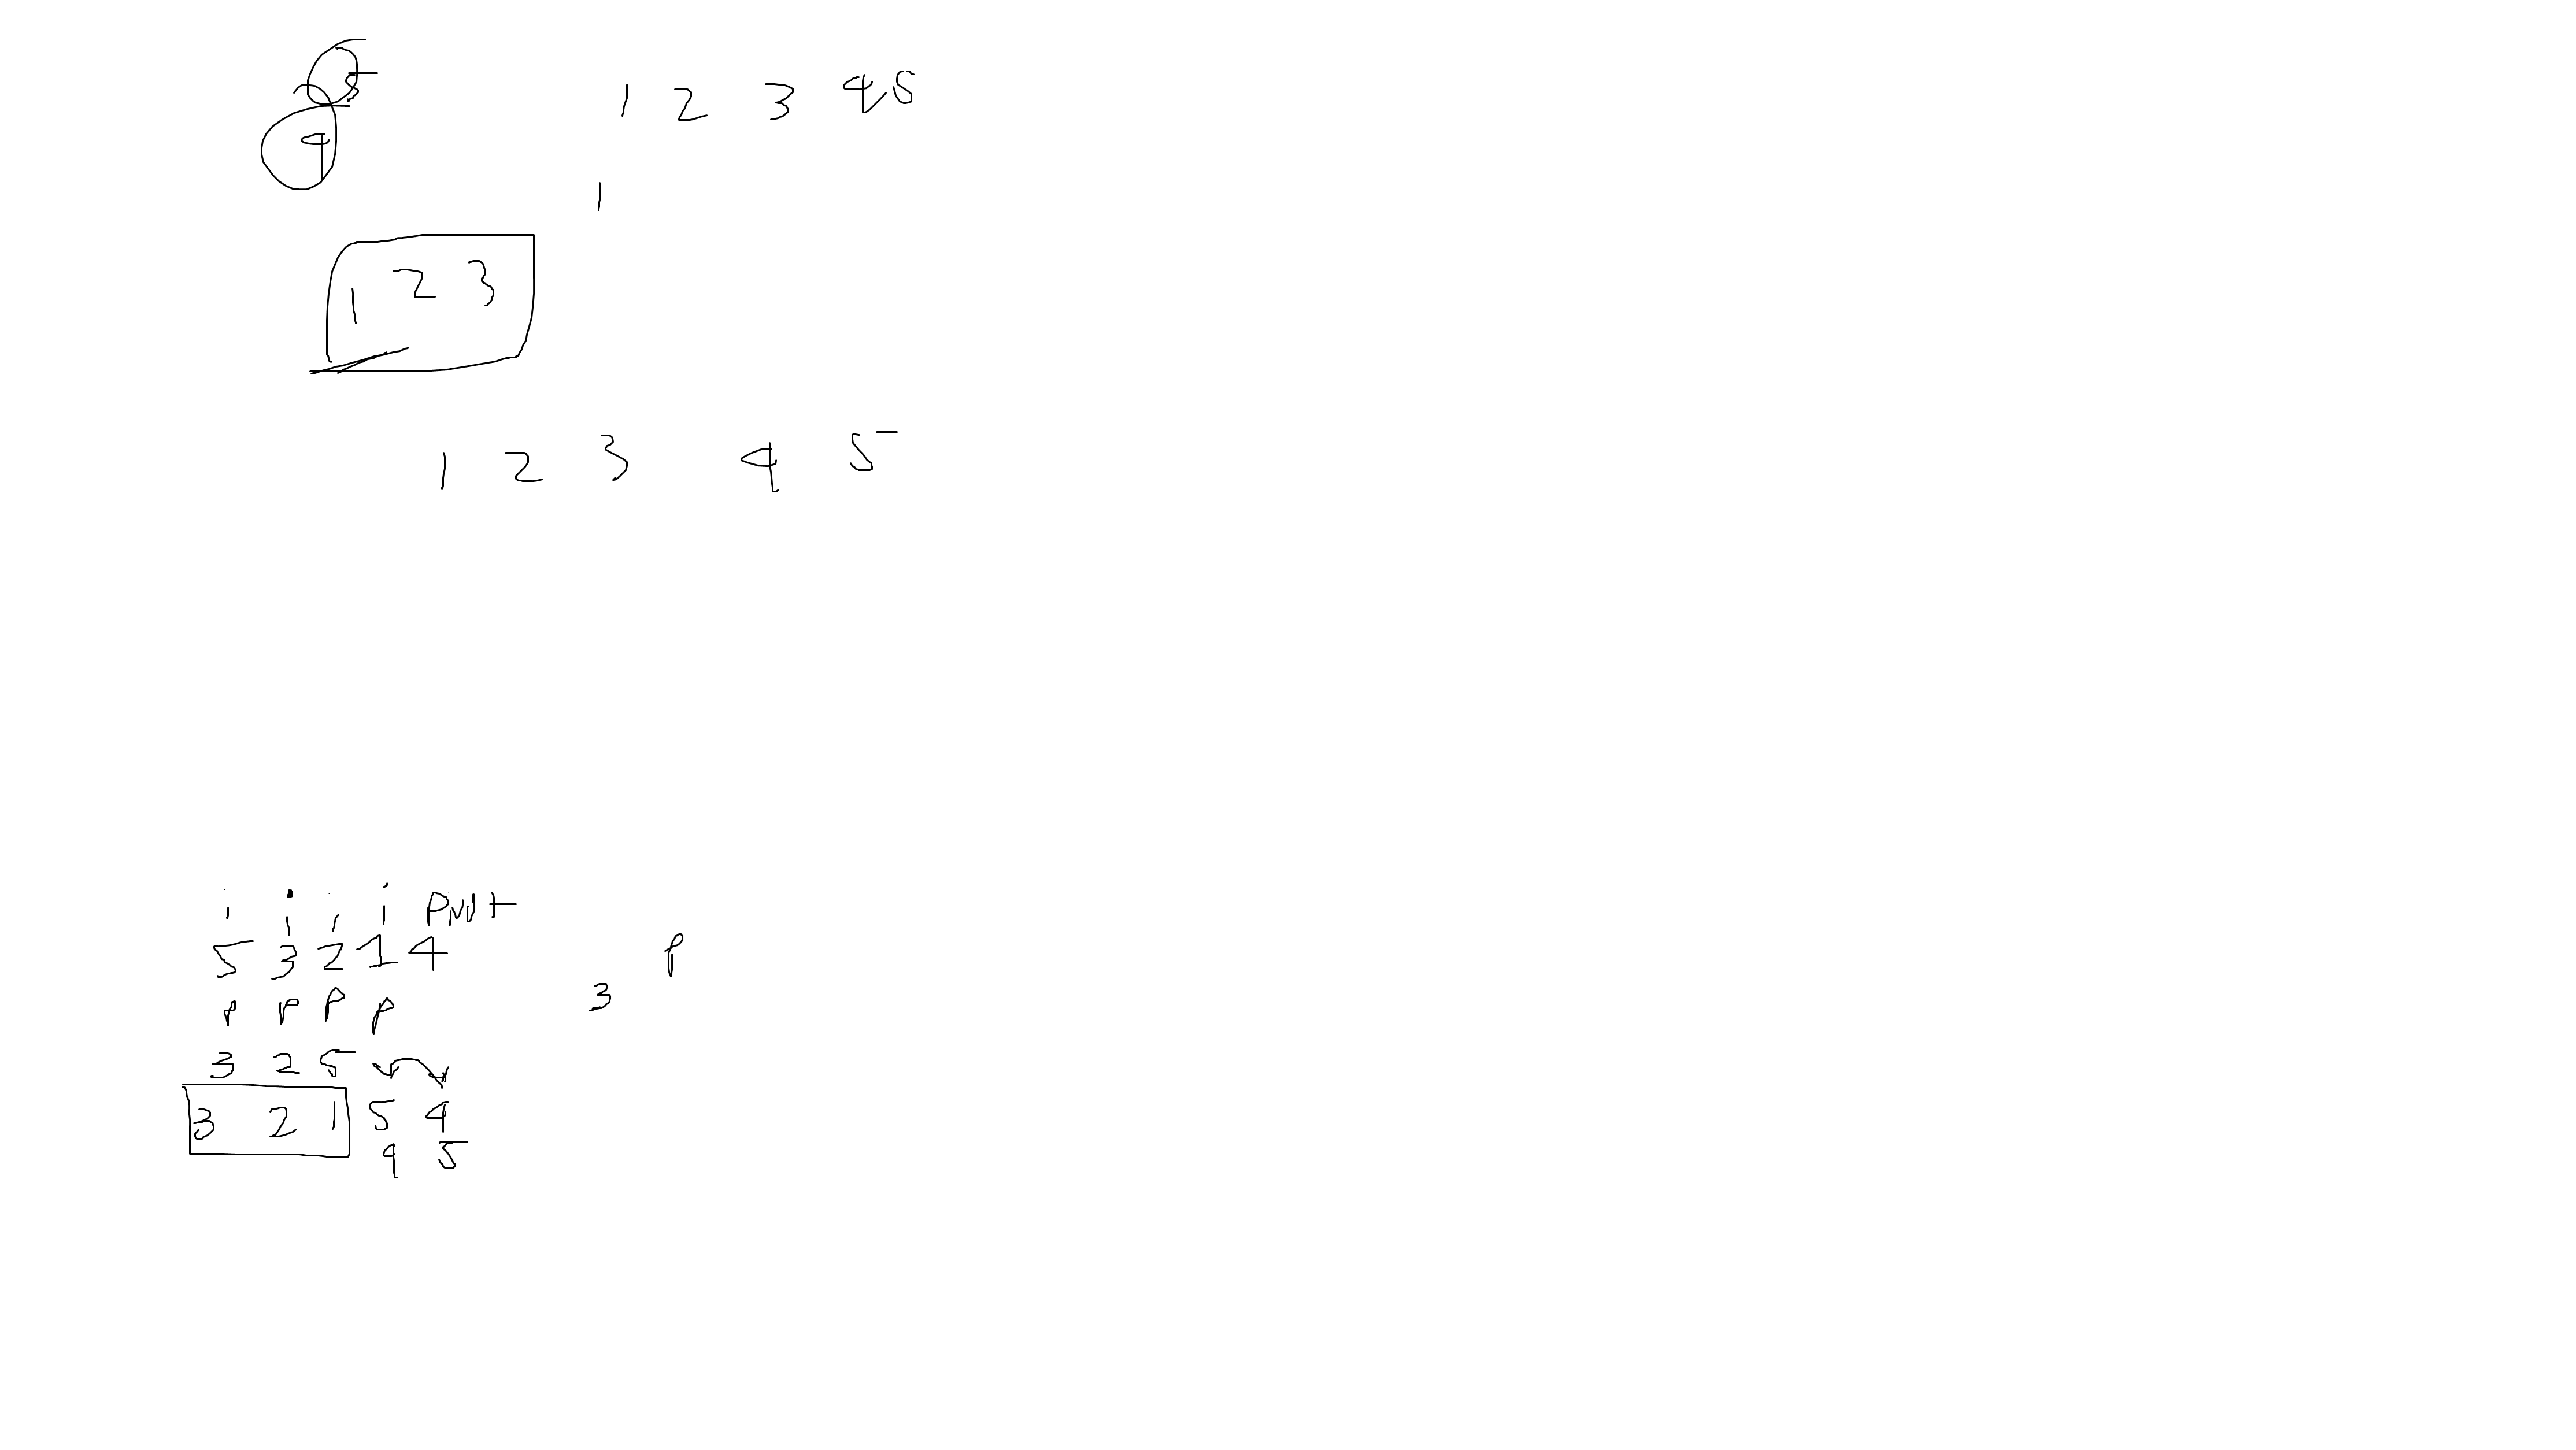 5
1 2 3 4 5
4
1
1 2 3
1 2 3 4 5
i i i i pivot
5 3 2 1 4
p
p p p p
3
3 2 5
3 2 1 5 4
4 5